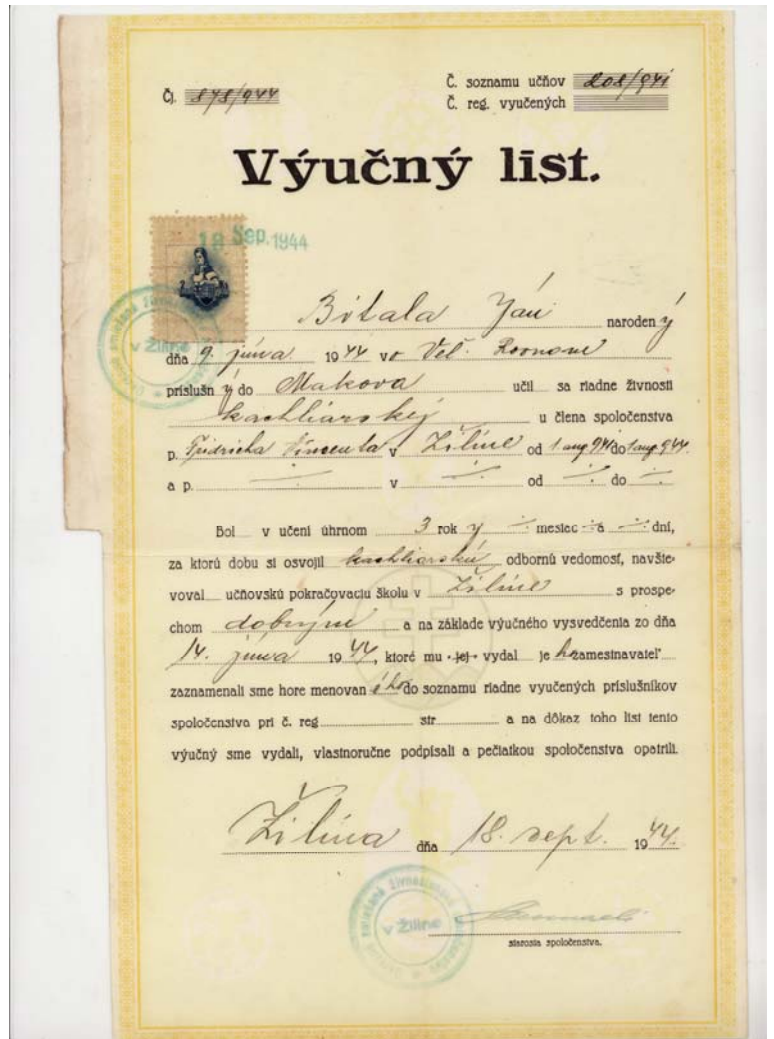 Čj. 878/944
Č. soznamu učňov 208/941
Č. reg. vyučených
Výučný list.
18 Sep. 1944
Bitala Ján narodený
dňa 9. júna 1944 vo Veľ. Rovnom
príslušný do Makova učil sa riadne živnosti
kachliarskej u člena spoločenstva
p. Fridricha Vincenta v Žiline od 1 aug 941 do 1 aug 944.
a p. ·/· v ·/· od ·/· do ·/·
Bol v učení úhrnom 3 roky ·/· mesiac ·/· a ·/· dní,
za ktorú dobu si osvojil kachliarskú odbornú vedomosť, navšte-
voval učňovskú pokračovaciu školu v Žiline s prospe-
chom dobrým a na základe výučného vysvedčenia zo dňa
14. júna 1944, ktoré mu jej vydal jeho zamestnavateľ
zaznamenali sme hore menovaného do soznamu riadne vyučených príslušníkov
spoločenstva pri č. reg str a na dôkaz toho list tento
výučný sme vydali, vlastnoručne podpísali a pečiatkou spoločenstva opatrili.
Žilina dňa 18. sept. 1944.
v Žiline
starosta spoločenstva.